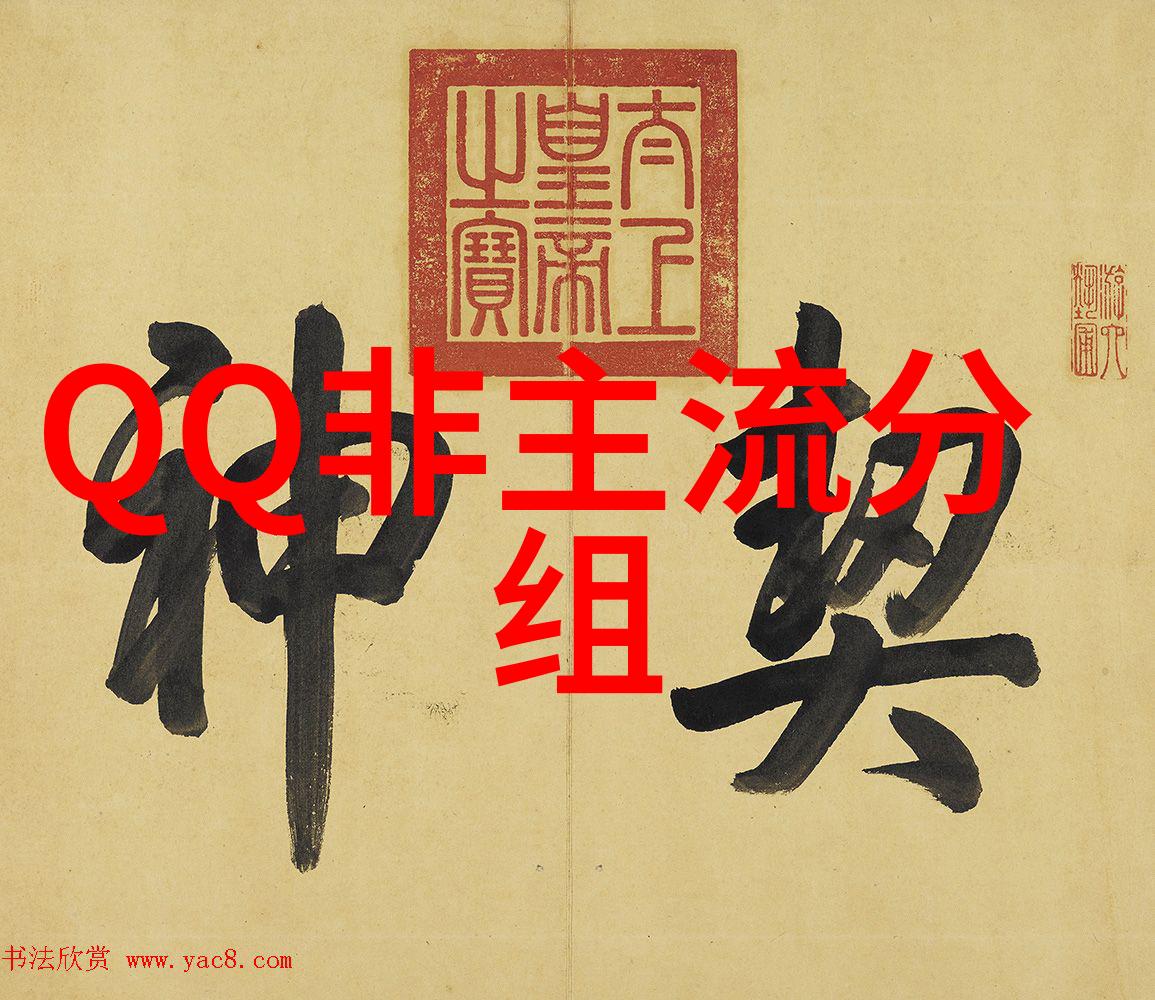 太上
皇帝
之寶
游六
藝圃
QQ非主流分
组
契神
书法欣赏 www.yac8.com